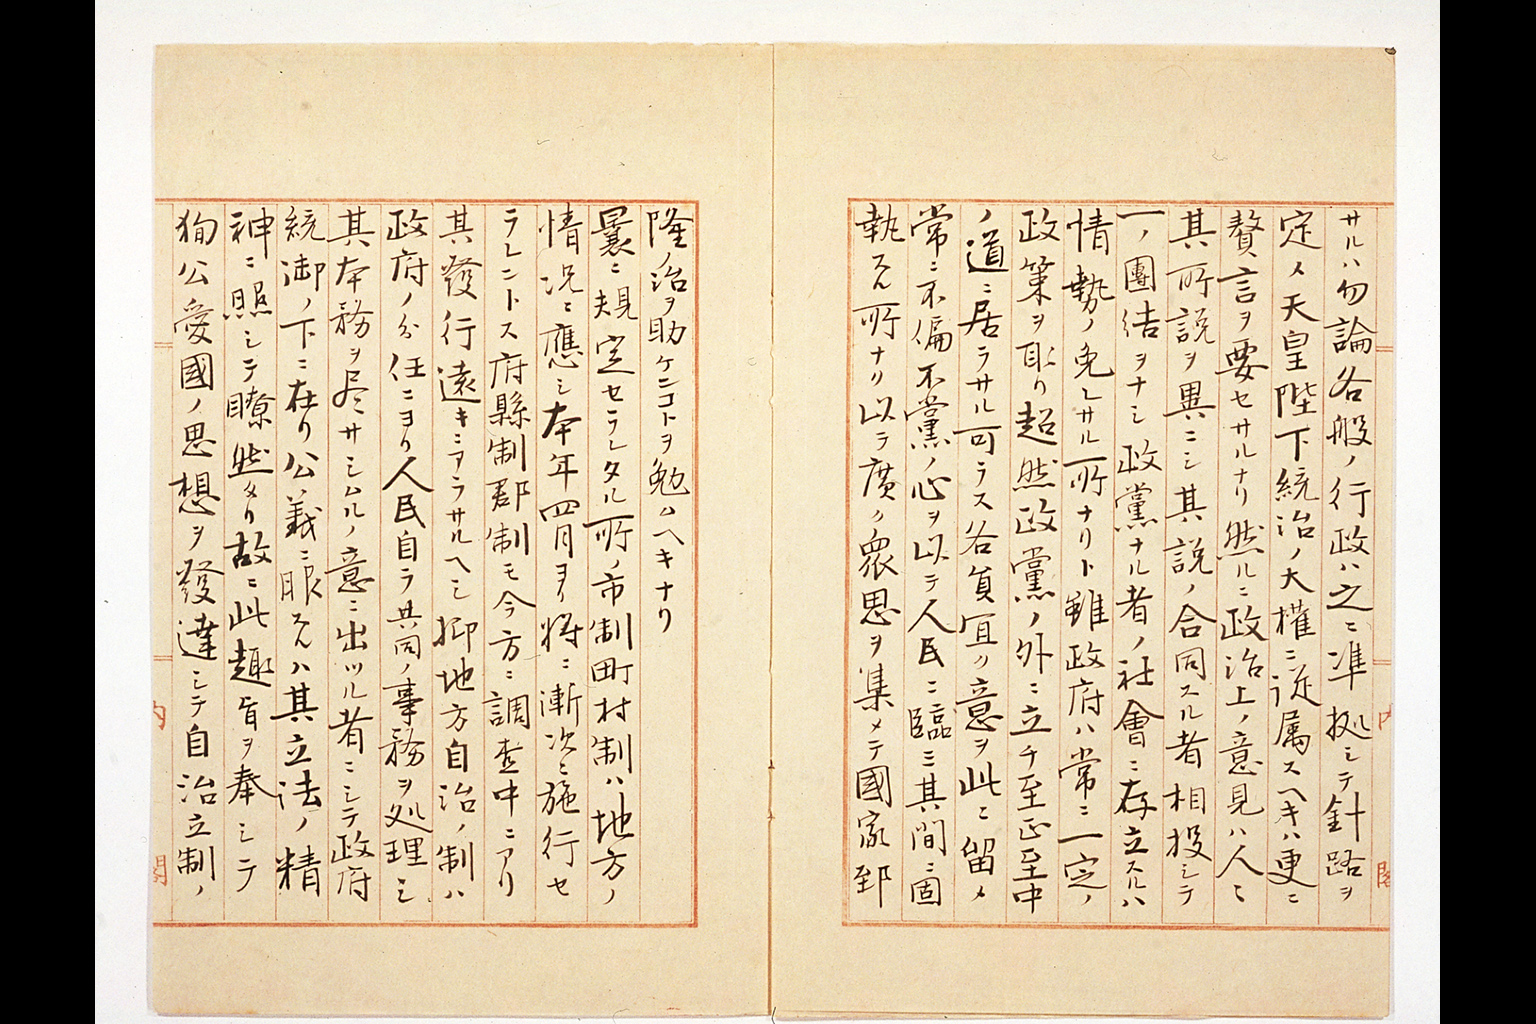 サルハ勿論各般ノ行政ハ之ニ準拠シテ針路ヲ
定メ天皇陛下統治ノ大權ニ従属スヘキハ更ニ
贅言ヲ要セサルナリ然ルニ政治上ノ意見ハ人々
其所説ヲ異ニシ其説ノ合同スル者相投シテ
一ノ團結ヲナシ政黨ナル者ノ社會ニ存立スルハ
情勢ノ免レサル所ナリト雖政府ハ常ニ一定ノ
政策ヲ取リ超然政黨ノ外ニ立チ至正至中
ノ道ニ居ラサル可ラス各員宜ク意ヲ此ニ留メ
常ニ不偏不黨ノ心ヲ以テ人民ニ臨ミ其間ニ固
執スル所ナク以テ廣ク衆思ヲ集メテ國家郅
隆ノ治ヲ助ケンコトヲ勉ムヘキナリ
曩ニ規定セラレタル所ノ市制町村制ハ地方ノ
情况ニ應シ本年四月ヨリ將ニ漸次ニ施行セ
ラレントス府縣制郡制モ今方ニ調査中ニアリ
其發行遠キニアラサルヘシ抑地方自治ノ制ハ
政府ノ分任ニヨリ人民自ラ共同ノ事務ヲ処理シ
其本務ヲ尽サシムルノ意ニ出ツル者ニシテ政府
統御ノ下ニ在リ公義ニ服スルハ其立法ノ精
神ニ照シテ瞭然タリ故ニ此趣旨ヲ奉シテ
徇公愛國ノ思想ヲ發達シテ自治立制ノ
内閣